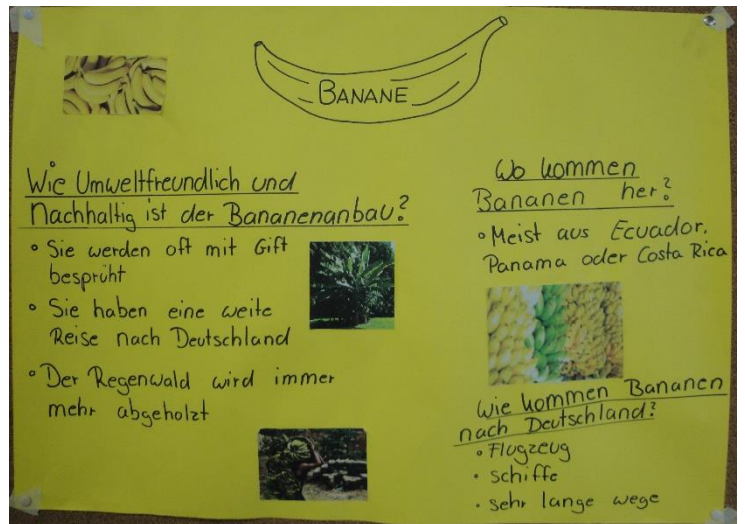 BANANE
Wie Umweltfreundlich und
Nachhaltig ist der Bananenanbau?
• Sie werden oft mit Gift
besprüht
• Sie haben eine weite
Reise nach Deutschland
• Der Regenwald wird immer
mehr abgeholzt
Wo kommen
Bananen her?
• Meist aus Ecuador,
Panama oder Costa Rica
Wie kommen Bananen
nach Deutschland?
• Flugzeug
• schiffe
• sehr lange wege